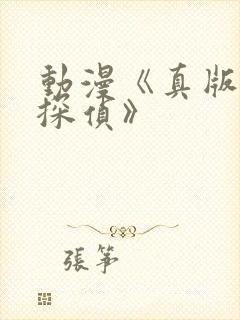 動漫《真版
探偵》
張筝